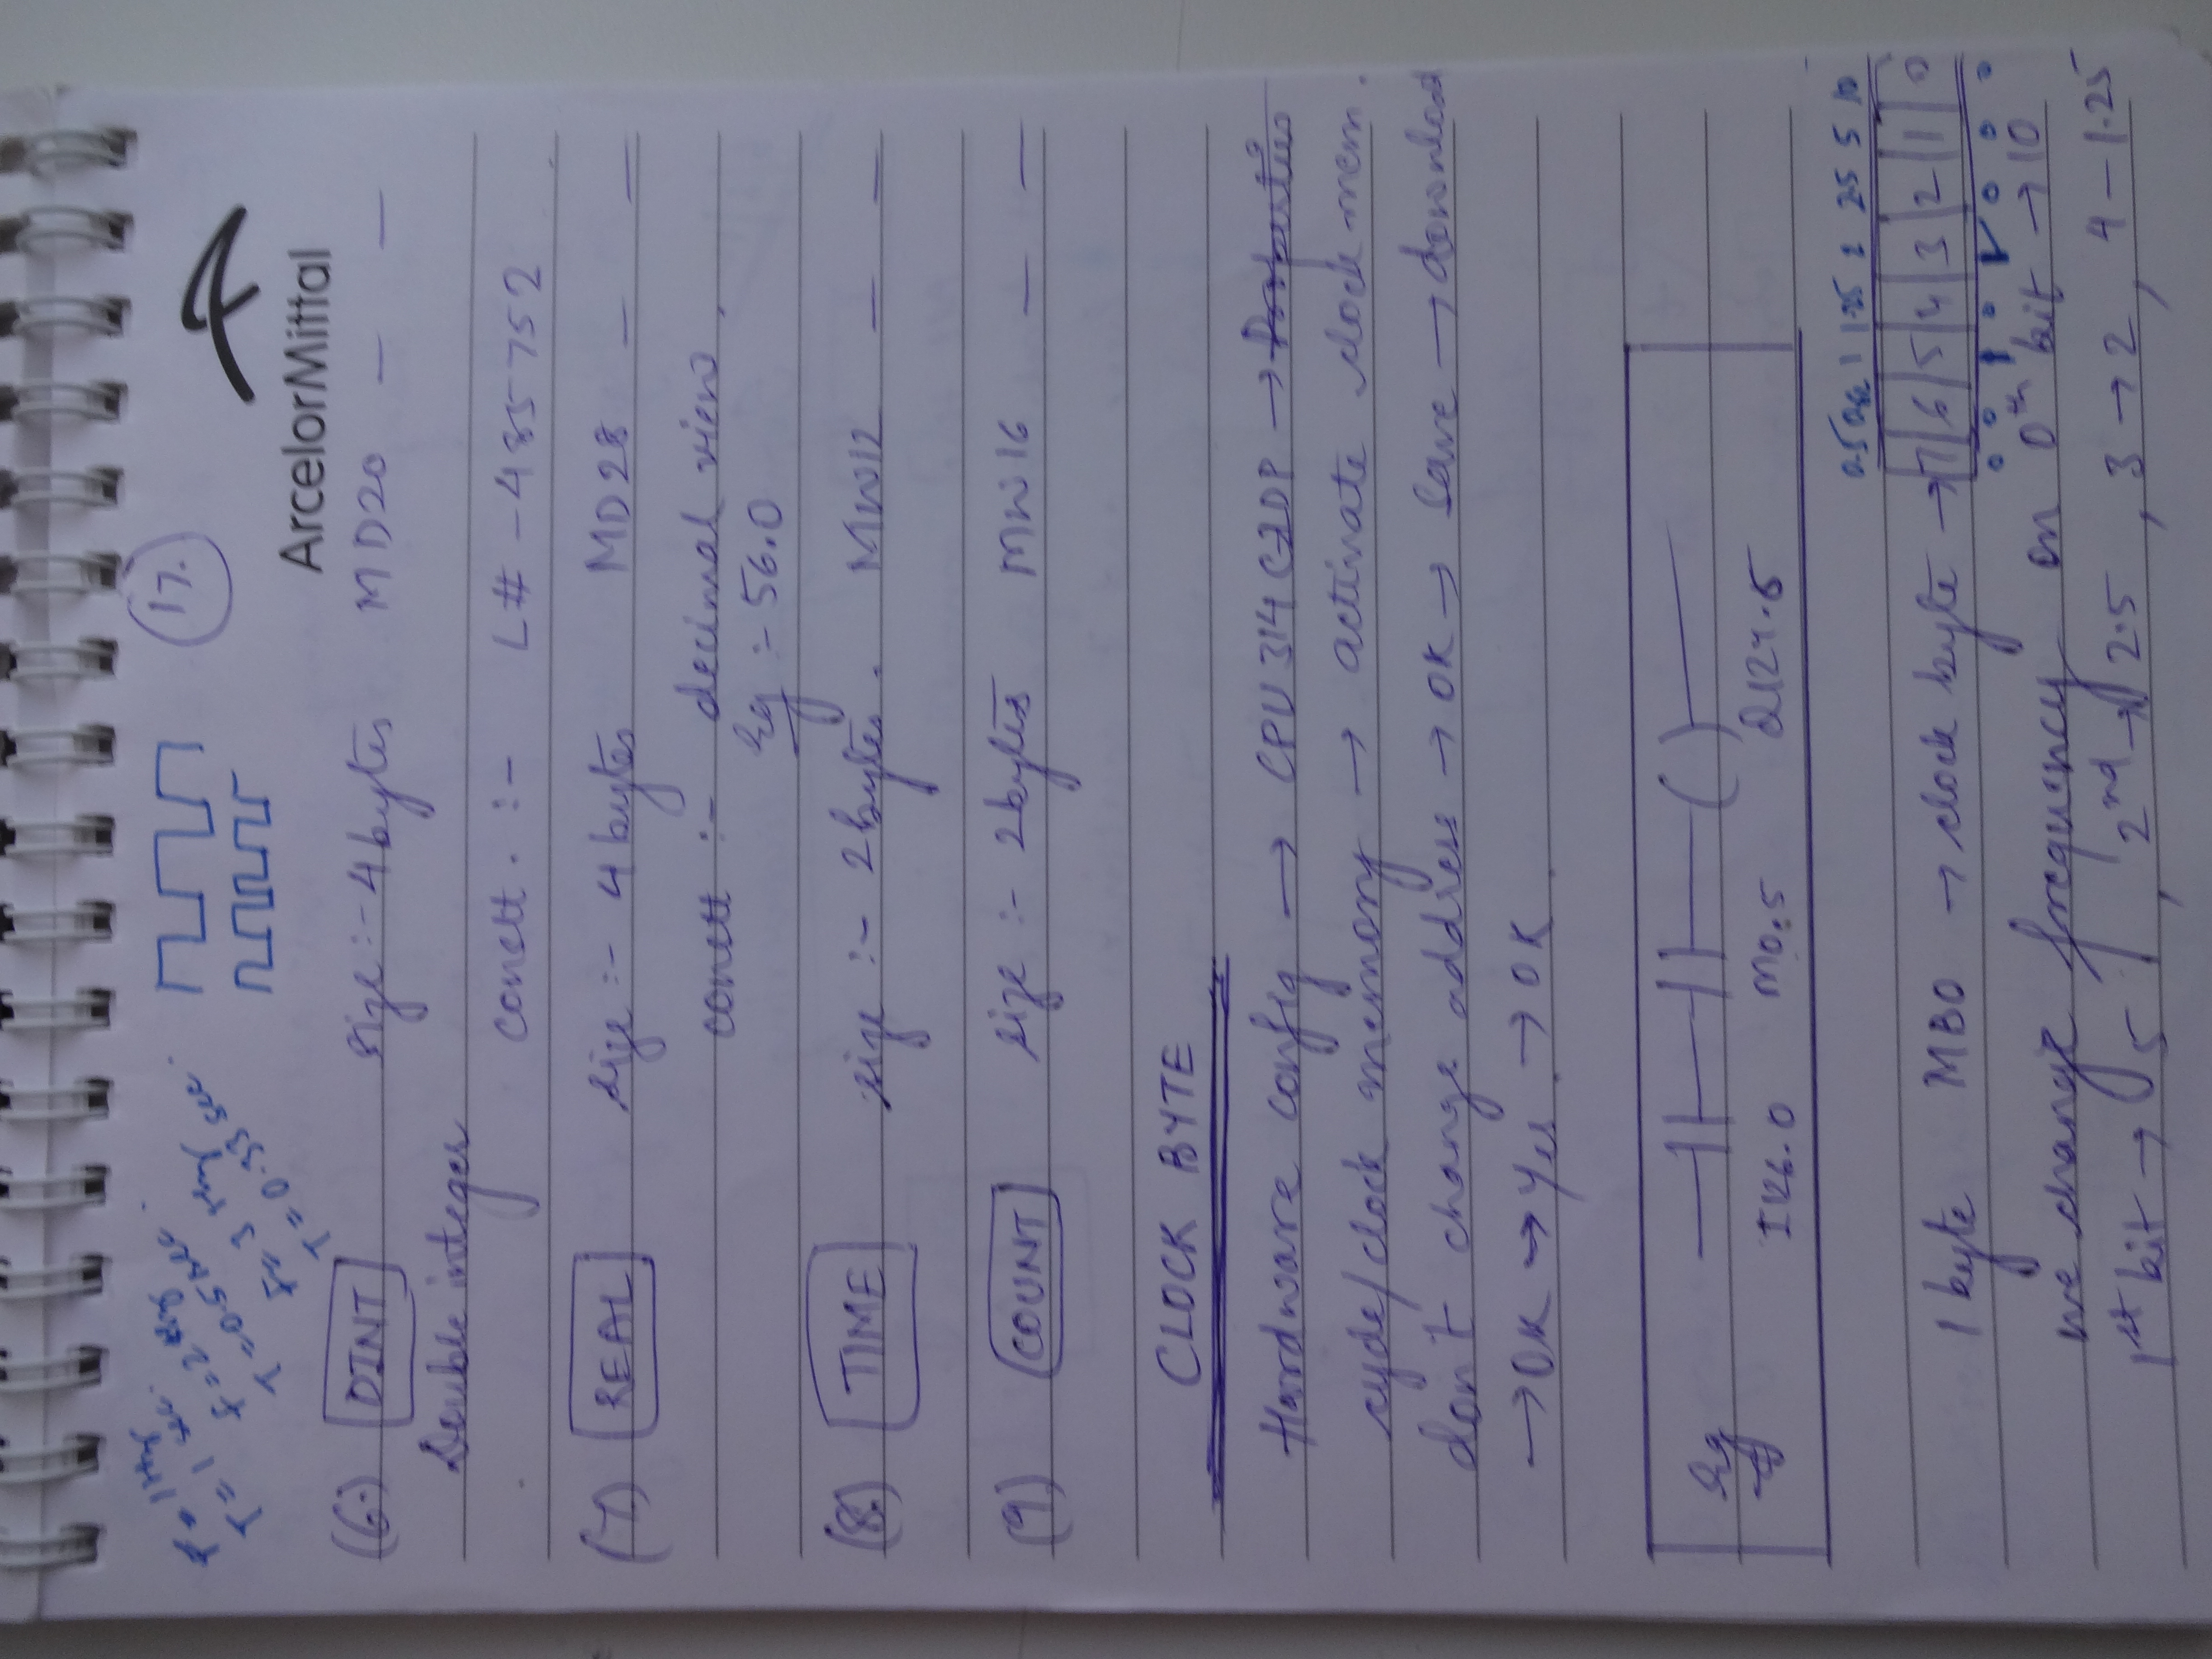 17.
ArcelorMittal
f = 1Hz
T = 1 sec.
f = 2 Hz
T = 0.5 sec.
f = 3
T = 0.33 sec.
(6.) DINT size :- 4 bytes MD20 — —
Double integer
constt. :- L# -485752
(7) REAL size :- 4 bytes MD28 — —
constt :- decimal view
Eg :- 56.0
(8.) TIME size :- 2 bytes. MW12 — —
(9) COUNT size :- 2 bytes MW16 — —
CLOCK BYTE
Hardware config → CPU 314 C2DP →
cycle/clock memory → activate clock mem.
don't change address → OK → Save → download
→ OK → Yes → OK
Eg
I126.0 M0.5 Q124.5
0.5 1 1.25 2 2.5 5 10
1 byte MB0 → clock byte → 7 6 5 4 3 2 1 0
we change frequency on 0th bit → 10
1st bit → 5, 2nd → 2.5, 3 → 2, 4 - 1.25